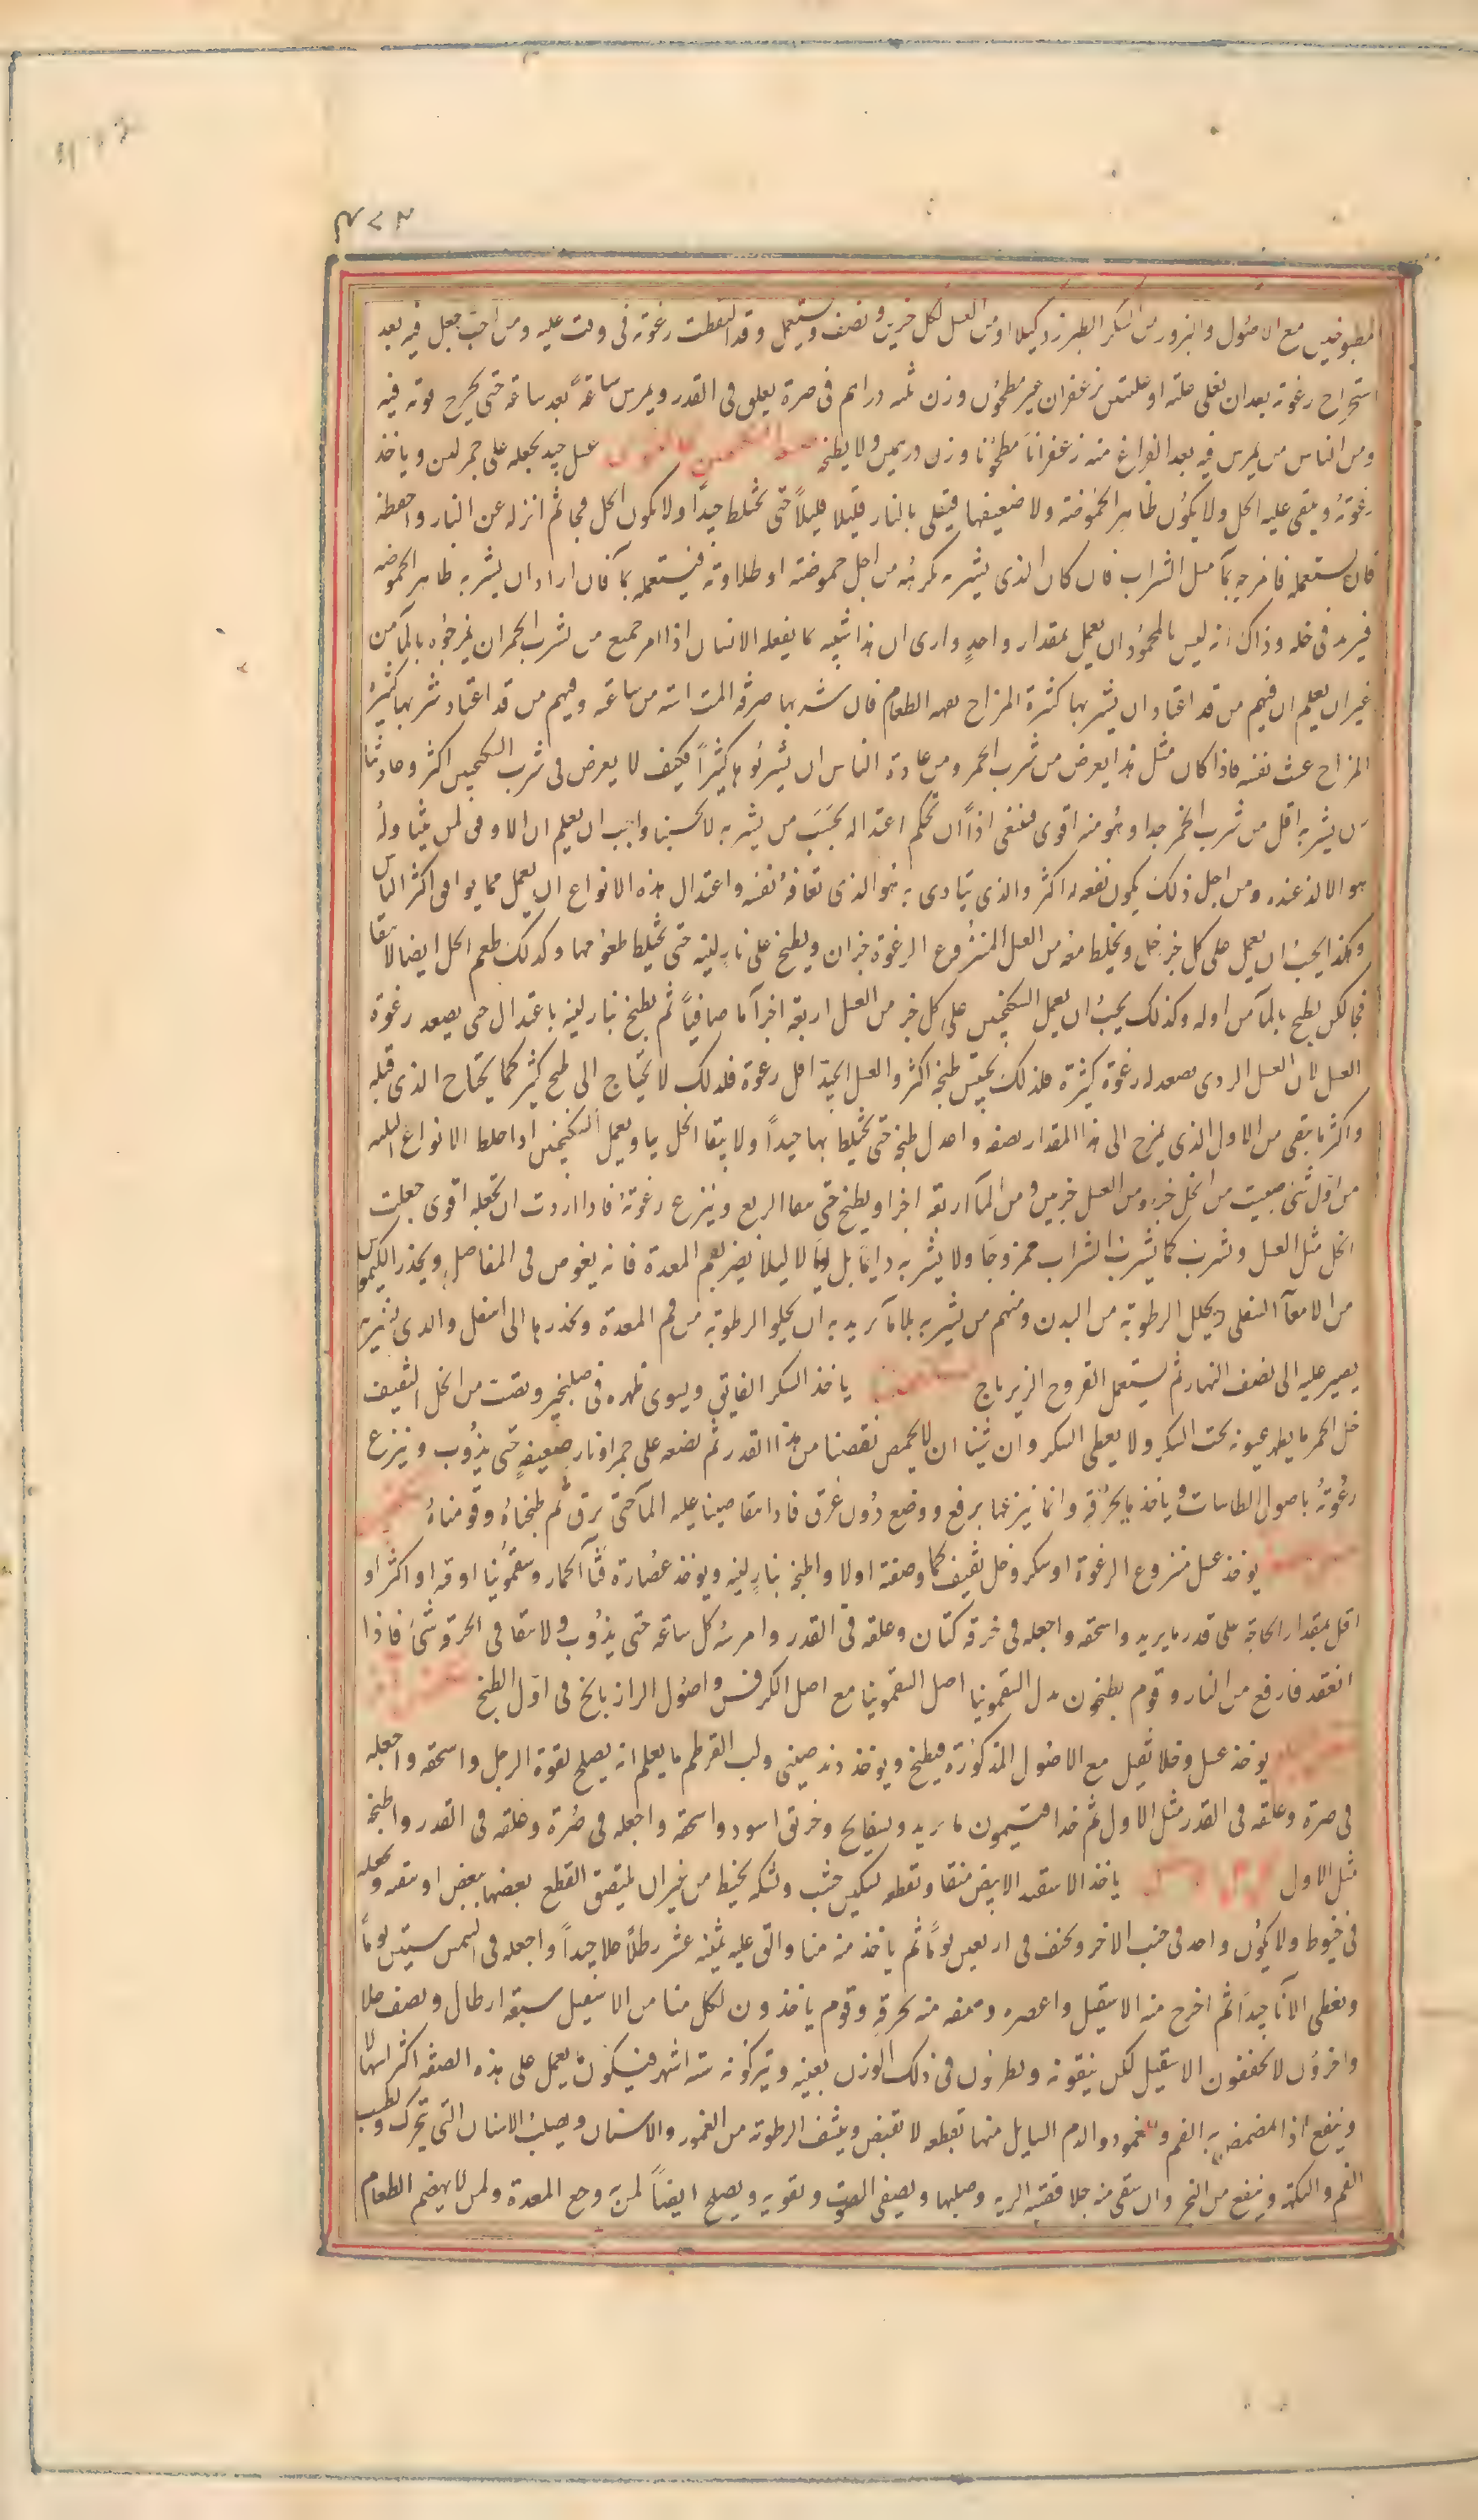 المطبوخين مع الاصول والبزور من السكر الطبرزد كيلا او من العسل لكل جزئين ونصف ويستعمل وقد التقطت رغوته فى وقت عليه ومن احب جعل فيه بعد
استخراج رغوته بعد ان تغلى غلية او غليتين زعفران غير مطحون وزن ثلثه دراهم فى صرة يعلق فى القدر ويمرس ساعة بعد ساعة حتى يخرج قوته فيه
ومن الناس من يمرس فيه بعد الفراغ منه زعفرانا مطحونا وزن درهمين ولا يطبخ عسل جيد يجعله على جمر لين وياخذ
رغوته ويبقى عليه الخل ولا يكون ظاهر الحموضة ولا ضعيفها فيغلى بالنار قليلا قليلاً حتى تختلط جيداً ولا يكون الخل فجا ثم انزله عن النار واحفظه
فان يستعمله فامزجه بماء مثل الشراب فان كان الذى يشربه كرهه من اجل حموضته او حلاوته فيستعمله بماء فان اراد ان يشربه ظاهر الحموضه
فيزيد فى خله وذاك انه ليس بالمحمود ان يعمل بمقدار واحدٍ وارى ان هذا شبيه بما يفعله الانسان اذا امر جميع من يشرب الخمر ان يمزجوه بالماء من
غير ان يعلم ان فيهم من قد اعتاد ان يشربها كثرة المزاج فان شربها صرفه المت راسه من ساعته وفيهم من قد اعتاد شربها كثيرة
المزاج غثت نفسه فاذا كان مثل هذا يعرض من شرب الخمر ومن عادة الناس ان يشربوها كثيراً فكيف لا يعرض فى شرب السكنجبين اكثر وعادتنا
من يشربه اقل من شرب الخمر جدا وهو منه اقوى فينبغى اذاً ان تحكم اعتداله بحسب من يشربه لا بحسبنا واجب ان يعلم ان الاوفق لمن يتناوله
هو الالذ عنده ومن اجل ذلك يكون نفعه له اكثر والذى يتاذى به هو الذى تعافه نفسه واعتدال هذه الانواع ان يعمل مما يوافق اكثر الناس
وهكذا يجب ان يعمل على كل جزء خل ويخلط معه من العسل المنزوع الرغوة جزءان ويطبخ على نار لينه حتى تختلط طعومها وكذلك طعم الخل ايضا لا يبقا
فجا لكن يطبخ بالماء من اوله وكذلك يجب ان يعمل السكنجبين على كل جزء من العسل اربعة اجزآ ما صافياً ثم يطبخ بنار لينه باعتدال حتى يصعد رغوة
العسل لان العسل الردى يصعد له رغوة كثيرة فلذلك يحتبس طبخه اكثر والعسل الجيد اقل رغوة فلذلك لا يحتاج الى طبخ كثير كما يحتاج الذى قبله
واكثر ما يبقى من الاول الذى يمزج الى هذا المقدار نصفه واعدل طبخه حتى تختلط بها جيداً ولا يبقا الخل نيا ويعمل السكنجبين اذا خلط الانواع الثلثه
من اول شئ صببت من الخل جزء ومن العسل جزئين ومن المآ اربعة اجزا ويطبخ حتى يبقا الربع وينزع رغوته فاذا اردت ان تجعله اقوى جعلت
الخل مثل العسل وشرب كما يشرب الشراب ممزوجا ولا يشربه دايما بل اياما ليلا يضر بفم المعدة فانه يغوص فى المفاصل ويحذر الكيموس
من الامعآ السفلى ويحلل الرطوبة من البدن ومنهم من يشربه بلا مآ يريد به ان يجلو الرطوبة من فم المعدة ويحدرها الى اسفل والذى يشربه
يصير عليه الى نصف النهار ثم يستعمل الفروج الزيرباج ياخذ السكر الفايق ويسوى ظهره فى طنجير ويصب من الخل الثقيف
خل الخمر ما يظهر عيونه تحت السكر ولا يعطى السكر وان شئنا ان لا يحمض نقصنا من هذا القدر ثم نضعه على جمر او نار ضعيفةٍ حتى يذوب وينزع
رغوته باصول الطاسات وياخذ بالخرقة وانما ينزعها برفع ووضع دون غرق فاذا نقا صببنا عليه المآ حتى يرق ثم طبخناه وقومناه
يوخذ عسل منزوع الرغوة او سكر وخل ثقيف كما وصفته اولا واطبخه بنار لينه ويوخذ عصارة قثآ الحمار وسقمونيا اوقيه او اكثر او
اقل بمقدار الحاجة على قدر ما يريد واسحقه واجعله فى خرقة كتان وعلقه فى القدر وامرسه كل ساعة حتى يذوب ولا يبقا فى الخرقة شئ فاذا
انعقد فارفع من النار وقوم يطبخون بدل السقمونيا اصل السقمونيا مع اصل الكرفس واصول الرازيانج فى اول الطبخ
يوخذ عسل وخلا ثقيل مع الاصول المذكورة فيطبخ ويوخذ دند صينى ولب القرطم ما يعلم انه يصلح لقوة الرجل واسحقه واجعله
فى صرة وعلقه فى القدر مثل الاول ثم خذ افتيمون ما يريد وبسفايج وخربق اسود واسحقه واجعله فى صرة وعلقه فى القدر واطبخه
مثل الاول ياخذ الاسقيل الابيض منقا وتقطعه بسكين خشب وشكه بخيط من غير ان يلتصق القطع بعضها ببعض
فى خيوط ولا يكون واحد فى جنب الاخر ويجفف فى اربعين يوماً ثم ياخذ منه منا والق عليه ثمنيه عشر رطلاً خلا جيداً واجعله فى الشمس ستين يوماً
ويغطى الانآ جيداً ثم اخرج منه الاسقيل واعصره وصفه بخرقة وقوم ياخذون لكل منا من الاسقيل سبعة ارطال ونصف خلا
واخرون لا يجففون الاسقيل لكن ينقونه ويطرحون فى ذلك الوزن بعينه ويتركونه ستة اشهر فيكون يعمل على هذه الصفة اكثر اسهالا
وينفع اذا تمضمض به الفم والغمور والدم السايل منها تقطعه لا تقبض وينشف الرطوبة من الغمور والاسنان ويصلب الاسنان التى تتحرك ويطيب
الفم والنكهة وينفع من البخر وان سقى منه جلا قصبة الرية وصلبها ويصفى الصوت ويقويه ويصلح ايضاً لمن به وجع المعدة ولمن لا يهضم الطعام